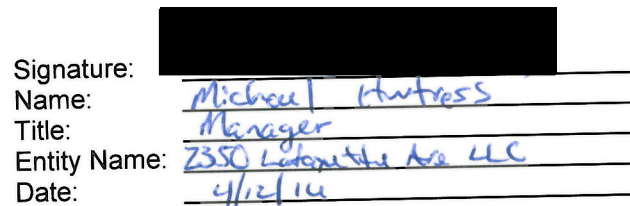 Signature:
Name: Michael Huntress
Title: Manager
Entity Name: 2350 Lafayette Ave LLC
Date: 4/12/16